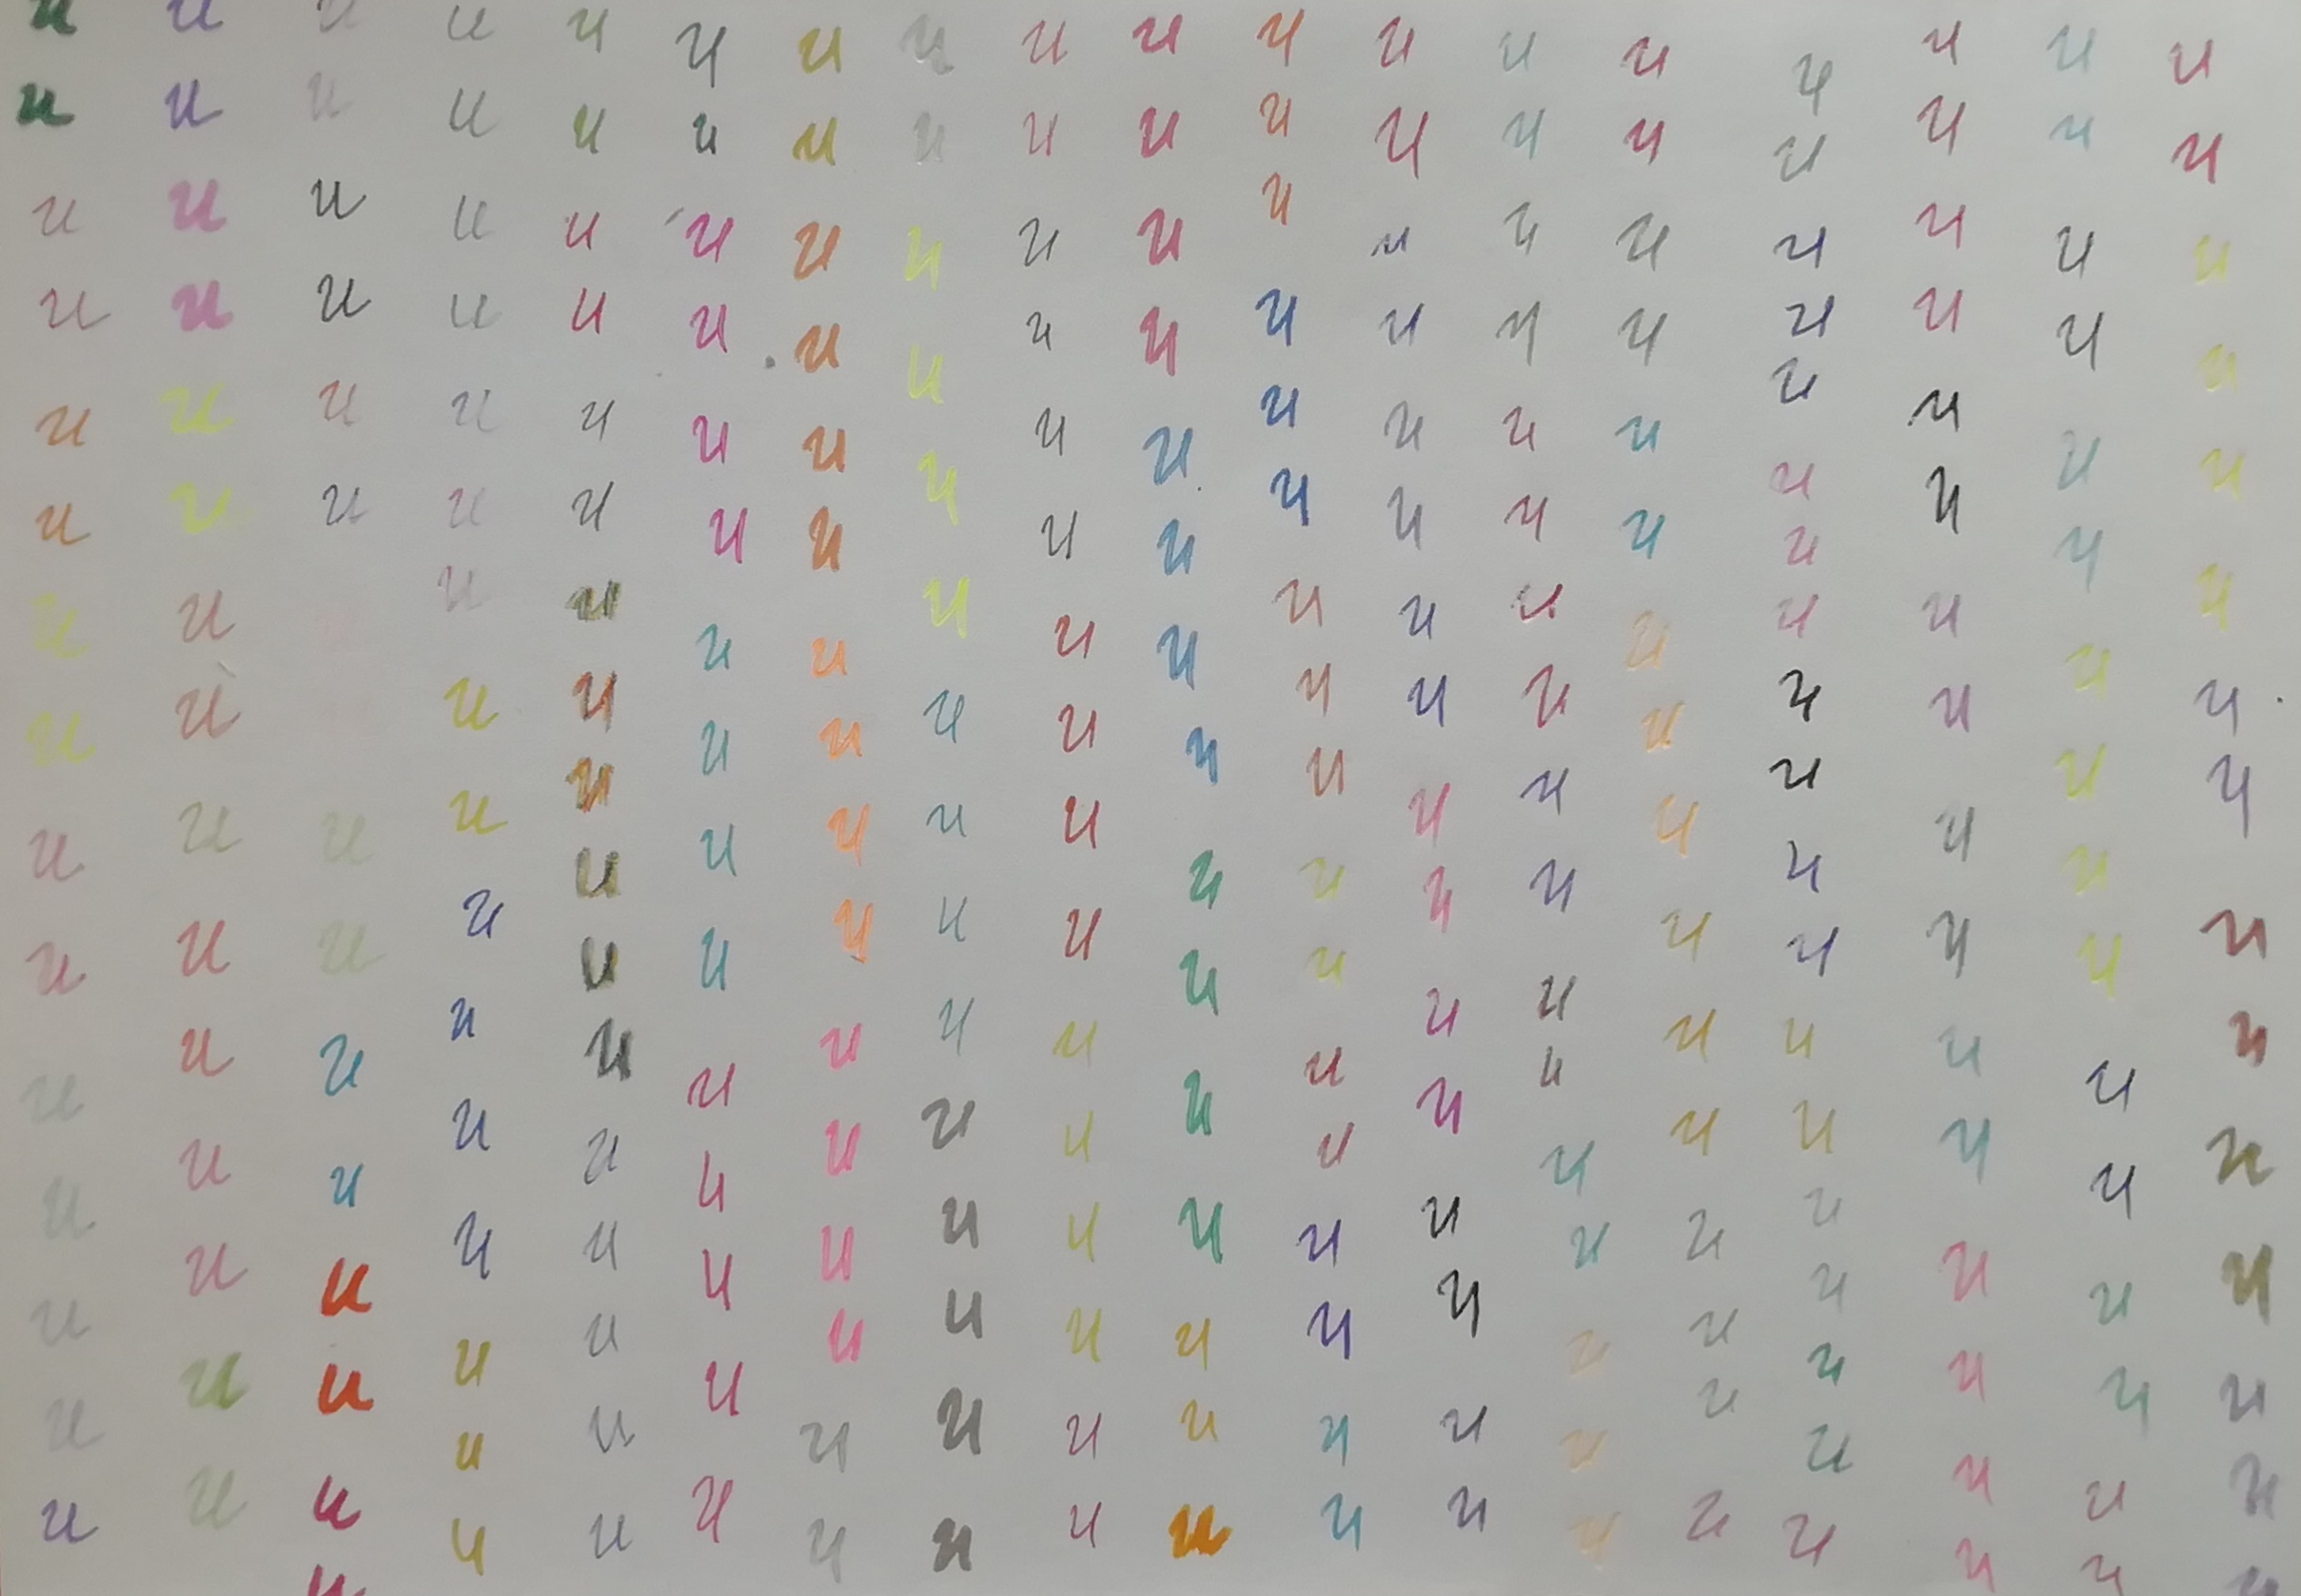 и и и и и и и и и и и и и и и и и и
и и и и и и и и и и и и и и и и и и
и и и и и и и и и и и и и и и и и и
и и и и и и и и и и и и и и и и и и
и и и и и и и и и и и и и и и и и и
и и и и и и и и и и и и и и и и и и
и и и и и и и и и и и и и и и и и
и и и и и и и и и и и и и и и и и
и и и и и и и и и и и и и и и и и и
и и и и и и и и и и и и и и и и и и
и и и и и и и и и и и и и и и и и и
и и и и и и и и и и и и и и и и и и
и и и и и и и и и и и и и и и и и и
и и и и и и и и и и и и и и и и и и
и и и и и и и и и и и и и и и и и и
и и и и и и и